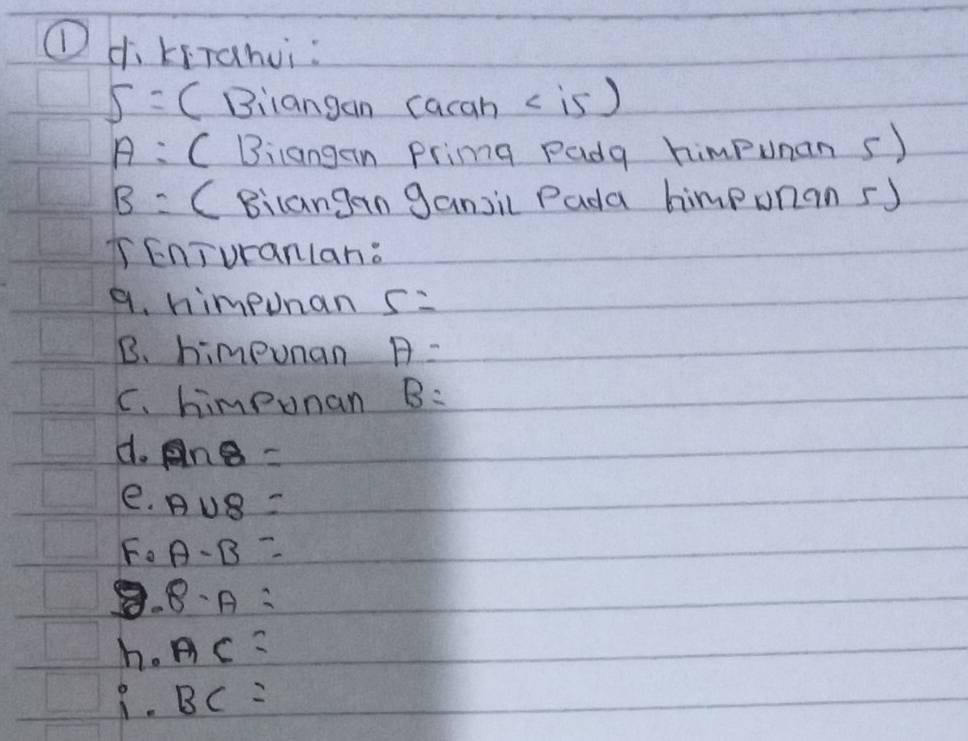 ① diketahui:
S = ( Bilangan cacah < 15 )
A = ( Bilangan prima pada himpunan S )
B = ( Bilangan ganjil Pada himpunan S )
TEnTukanlah:
a. himpunan S =
B. himpunan A =
C. himpunan B =
d. A∩B =
e. A∪B =
F. A-B =
g. B-A =
h. AC =
i. BC =